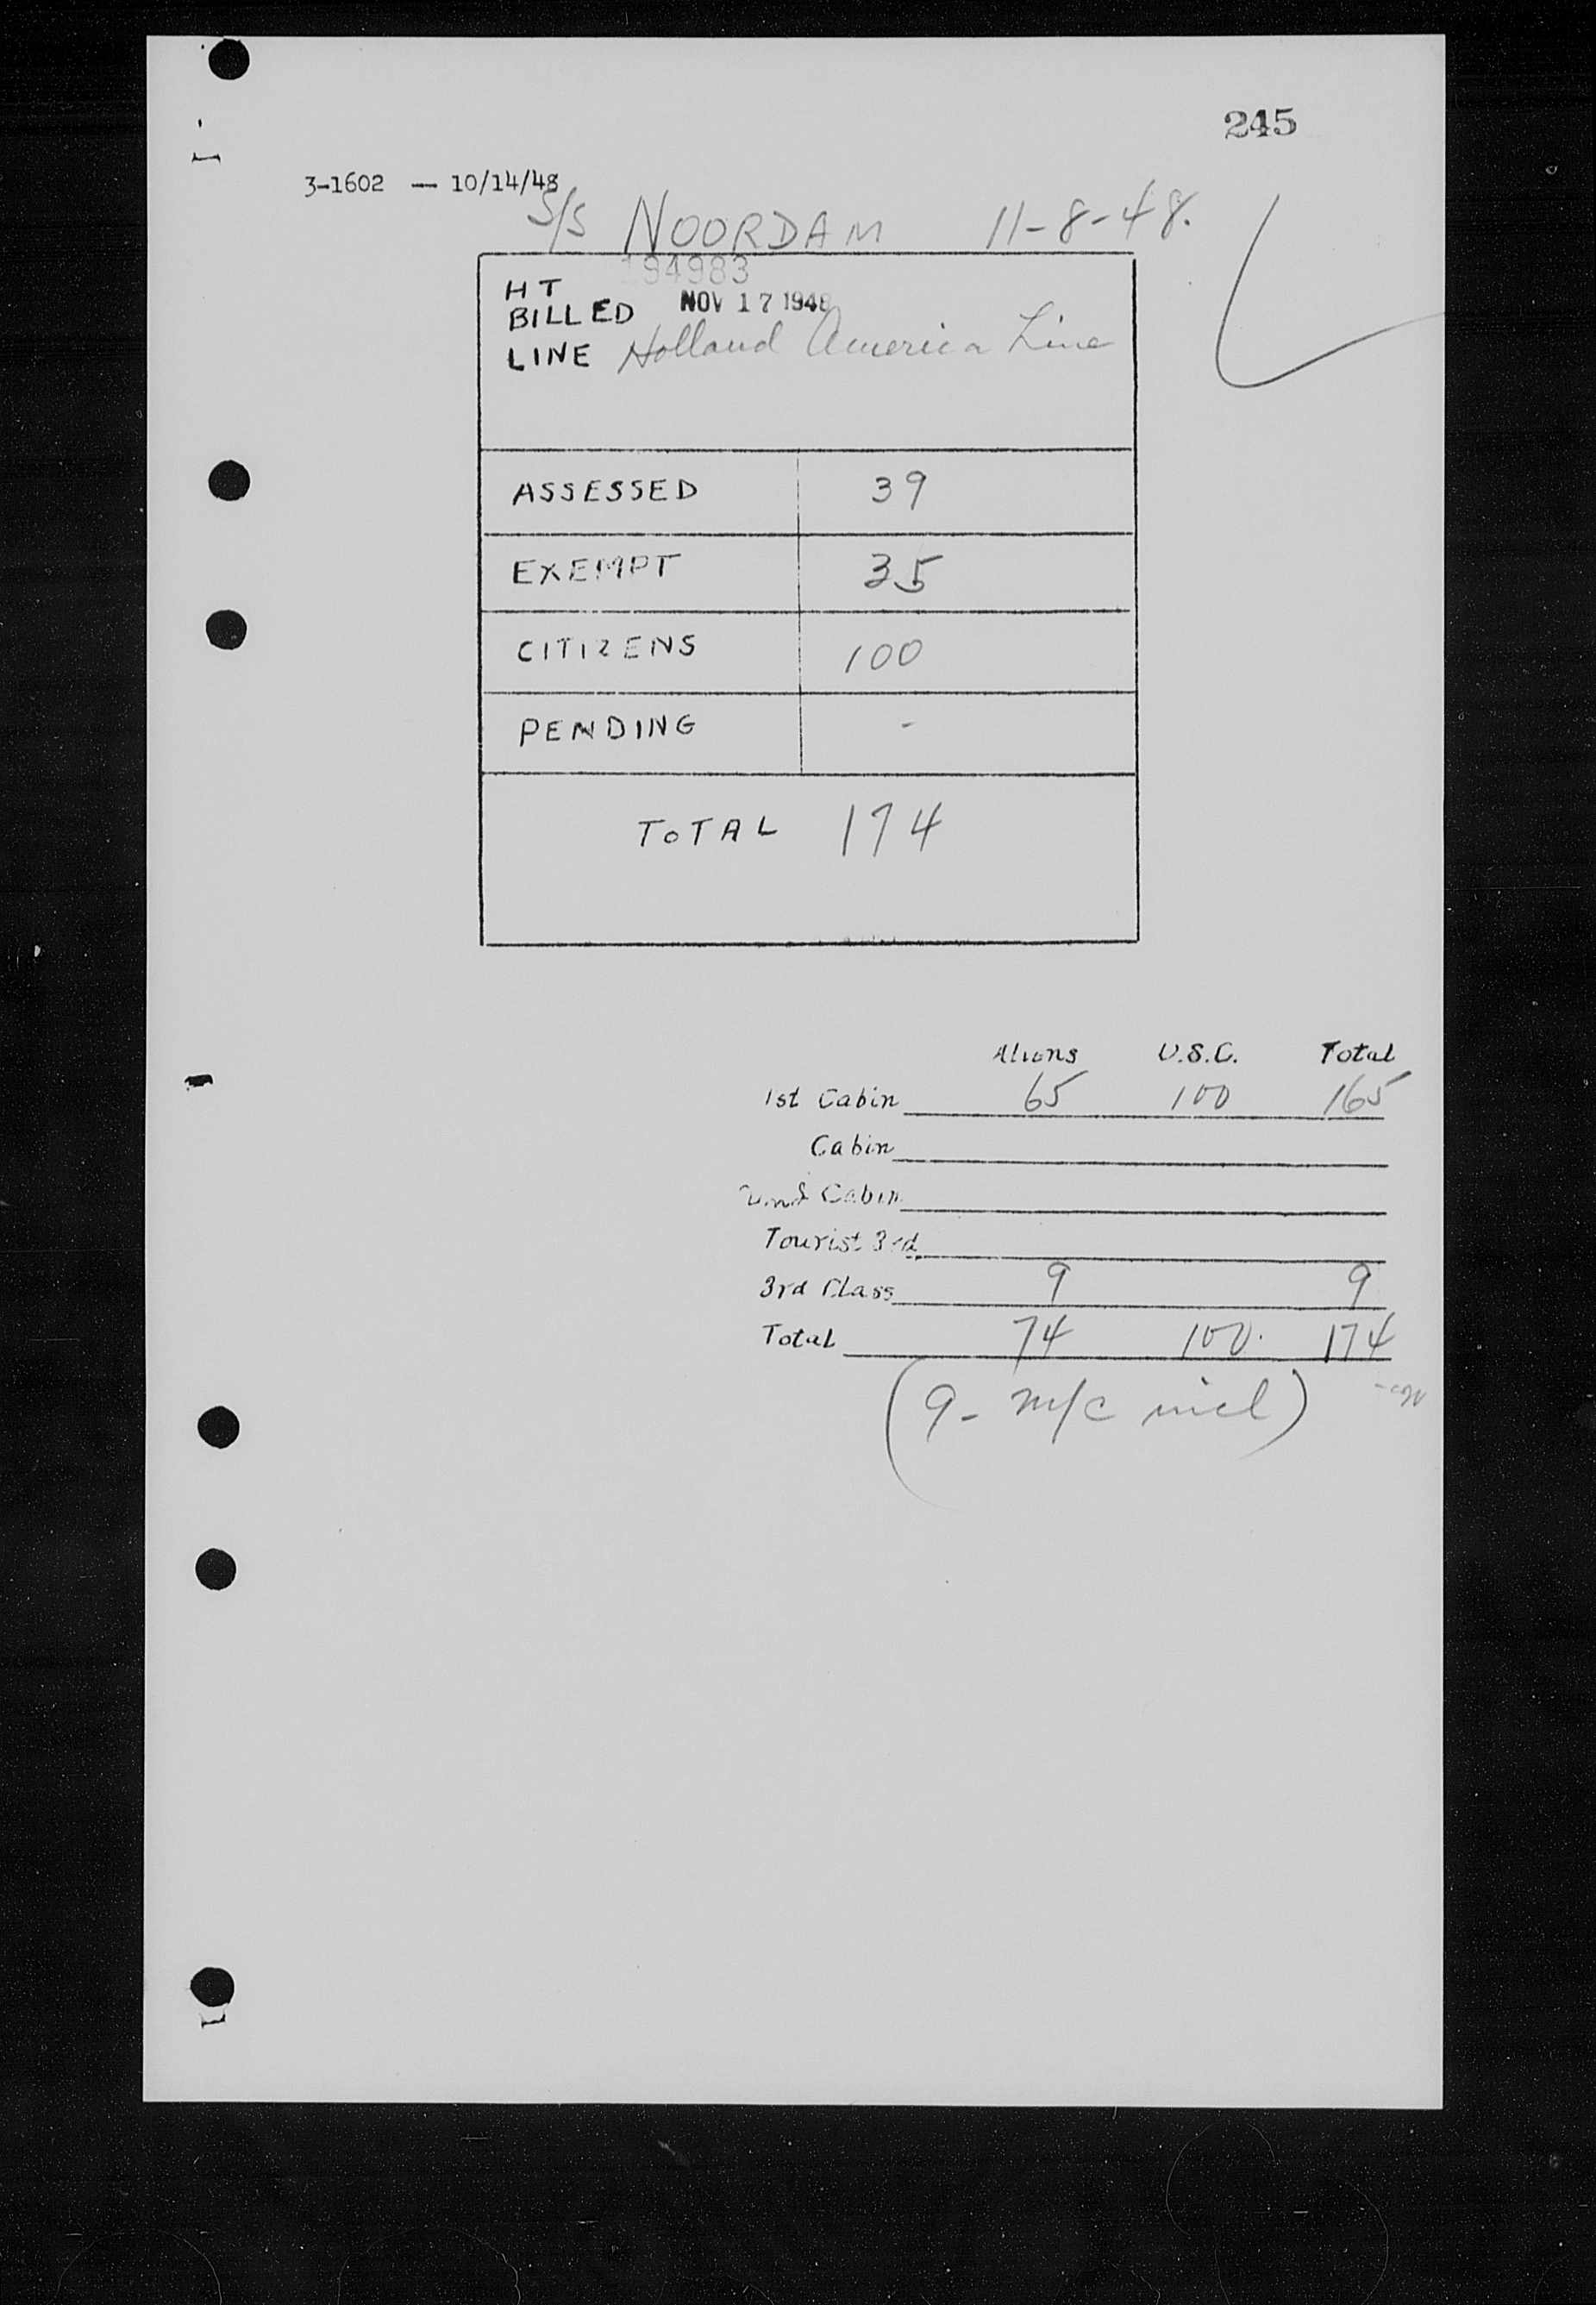 245
3-1602 — 10/14/48
S/S NOORDAM 11-8-48.
194983
HT
BILLED NOV 17 1948
LINE Holland America Line
ASSESSED 39
EXEMPT 35
CITIZENS 100
PENDING -
TOTAL 174
Aliens U.S.C. Total
1st Cabin 65 100 165
Cabin
Cabin
Tourist 3rd
3rd Class 9 9
Total 74 100. 174
(9- m/c incl)